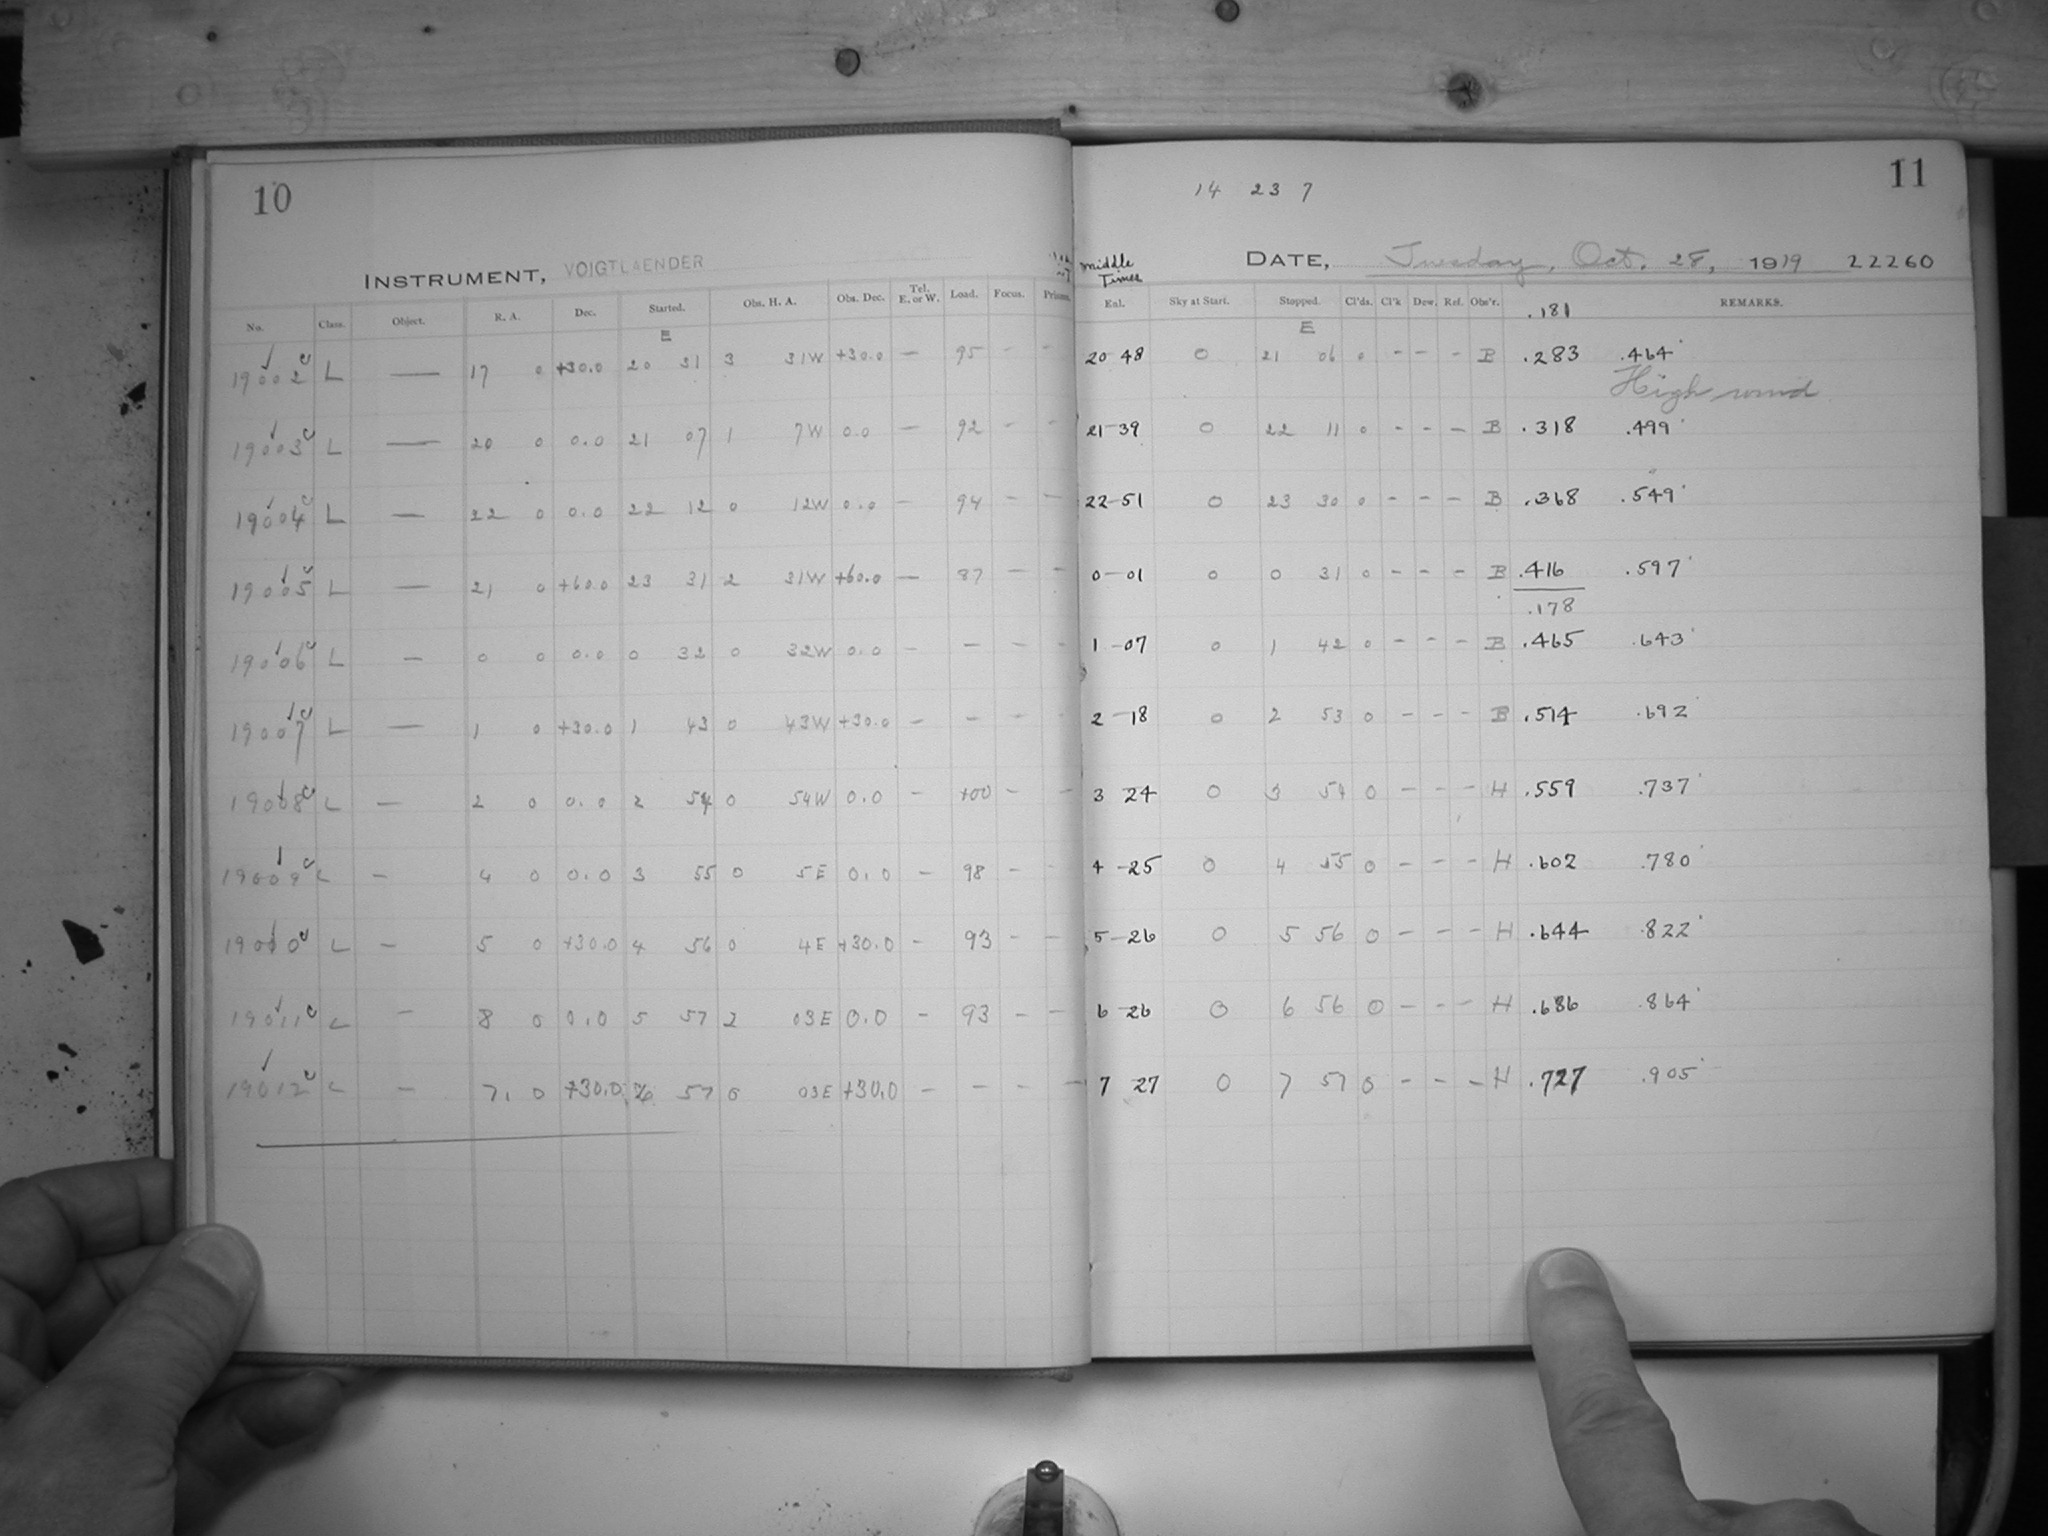 10
INSTRUMENT, VOIGTLAENDER
No. Class. Object. R. A. Dec. Started. Obs. H. A. Obs. Dec. Tel. E. or W. Load. Focus. Prisms.
E
19002 L — 17 0 +30.0 20 31 3 31W +30.0 — 95 - -
19003 L — 20 0 0.0 21 07 1 7W 0.0 — 92 - -
19004 L — 22 0 0.0 22 12 0 12W 0.0 — 94 - -
19005 L — 21 0 +60.0 23 31 2 31W +60.0 — 87 - -
19006 L — 0 0 0.0 0 32 0 32W 0.0 - - - -
19007 L — 1 0 +30.0 1 43 0 43W +30.0 - - - -
19008 L — 2 0 0.0 2 54 0 54W 0.0 - 100 - -
19009 L - 4 0 0.0 3 55 0 5E 0.0 - 98 - -
19010 L - 5 0 +30.0 4 56 0 4E +30.0 - 93 - -
19011 L - 8 0 0.0 5 57 2 03E 0.0 - 93 - -
19012 L - 7 0 +30.0 6 57 0 03E +30.0 - - - -
11
14 23 7
Middle Times
DATE, Tuesday, Oct. 28, 1919 22260
Enl. Sky at Start. Stopped. Cl'ds. Cl'k Dew. Ref. Obs'r. REMARKS.
.181
E
20-48 0 21 06 0 - - - B .283 .464
High wind
21-39 0 22 11 0 - - - B .318 .499
22-51 0 23 30 0 - - - B .368 .549
0-01 0 0 31 0 - - - B .416 .597
.178
1-07 0 1 42 0 - - - B .465 .643
2-18 0 2 53 0 - - - B .514 .692
3 24 0 3 54 0 - - - H .559 .737
4-25 0 4 55 0 - - - H .602 .780
5-26 0 5 56 0 - - - H .644 .822
6-26 0 6 56 0 - - - H .686 .864
7 27 0 7 57 0 - - - H .727 .905